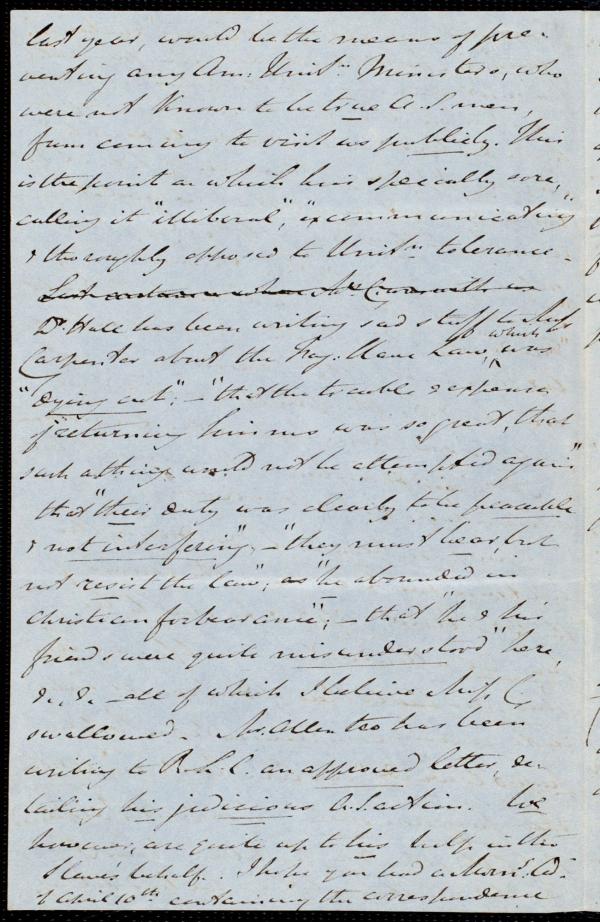 last year, would be the means of pre-
venting any Am: Unitn Ministers, who
were not known to be true A. S. men,
from coming to visit us publicly. This
is the point on which he is specially sore,
calling it "illiberal", "excommunicating"
& thoroughly opposed to Unitn tolerance -
Dr. Hall has been writing sad stuff to Miss
Carpenter about the Fug: Slave Law, which was
"dying out"; - "that the trouble & expense
of returning Simms was so great, that
such a thing would not be attempted again"
that "their duty was clearly to be peaceable
& not interfering", - "they must bear, but
not resist the law", as "he abounded in
Christian forbearance"; - that "he & his
friends were quite misunderstood" here,
&c, &c - all of which I believe Miss C
swallowed - Mr. Allen too has been
writing to R. L. C. an approved letter, de-
tailing his judicious A. S. action. We
however, are quite up to his help in the
Slave's behalf. I hope you had a Morng. Ad.
of April 10th containing the correspondence